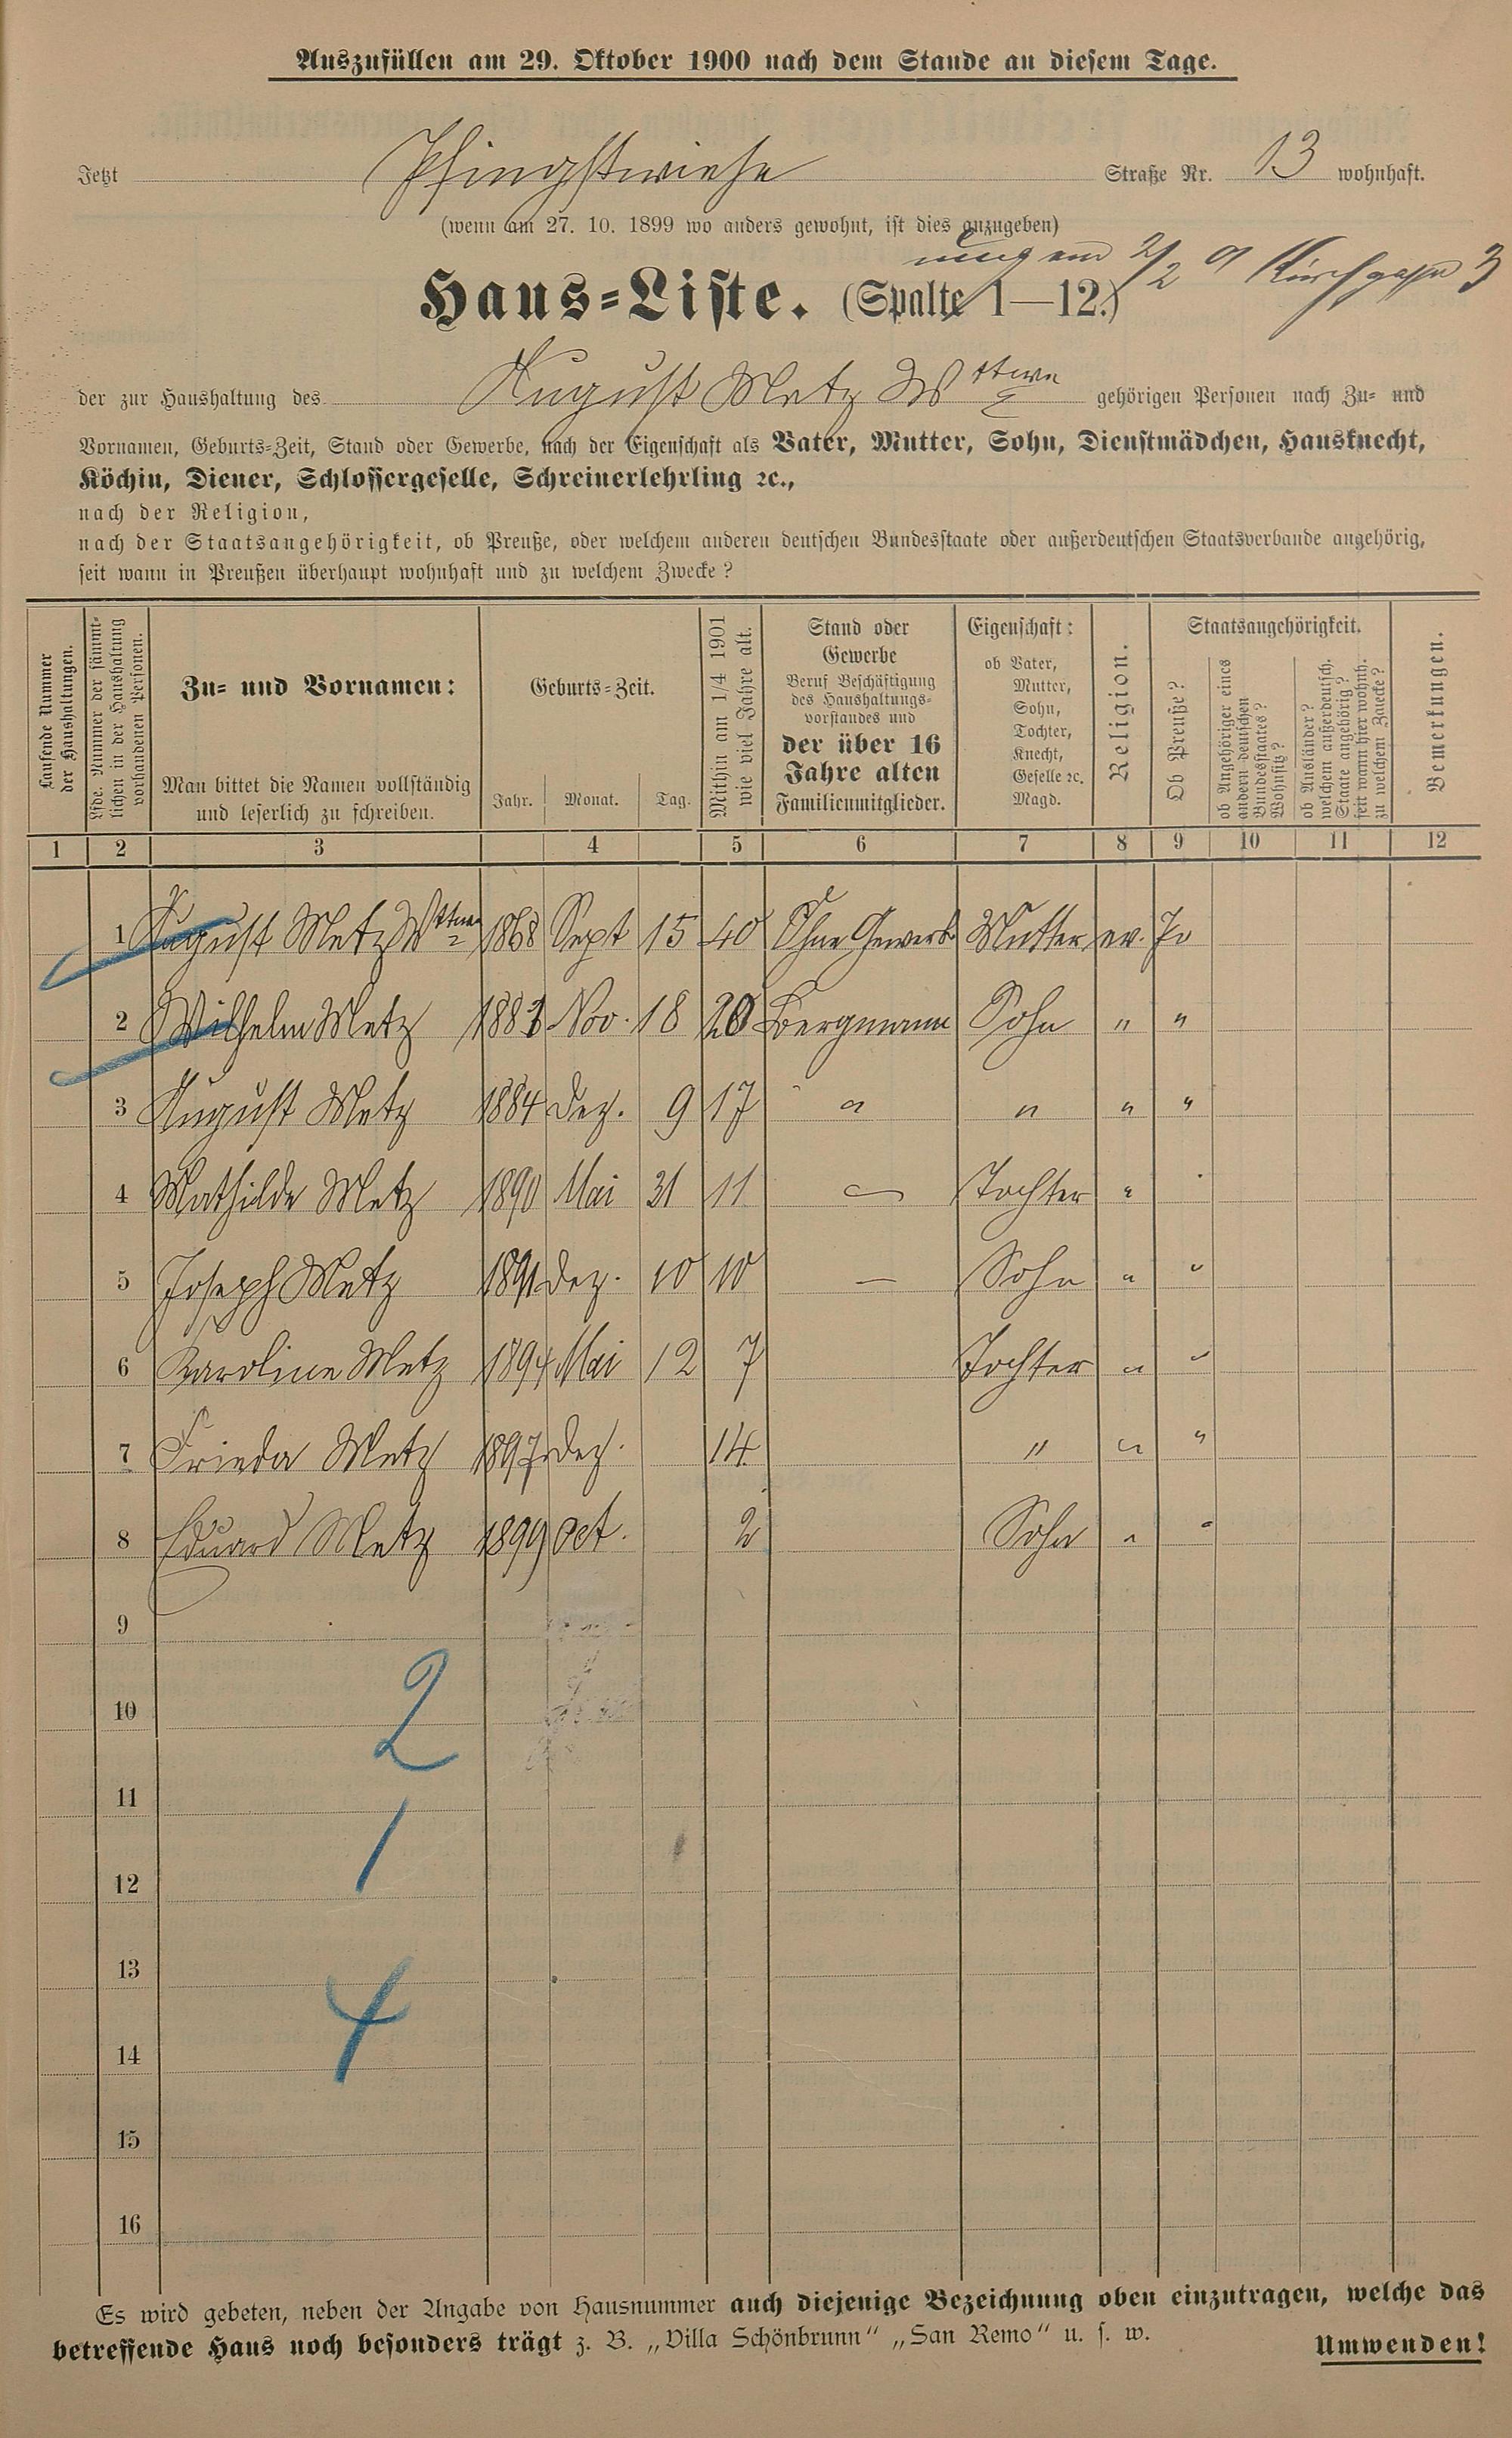 Auszufüllen am 29. Oktober 1900 nach dem Stande an diesem Tage.
Jetzt Pfingstwiese Straße Nr. 13 wohnhaft.
(wenn am 27. 10. 1899 wo anders gewohnt, ist dies anzugeben)
2/2 01 Kirchgasse 3
Haus=Liste. (Spalte 1—12.)
der zur Haushaltung des August Metz Wttwe gehörigen Personen nach Zu= und
Vornamen, Geburts=Zeit, Stand oder Gewerbe, nach der Eigenschaft als Vater, Mutter, Sohn, Dienstmädchen, Hausknecht,
Köchin, Diener, Schlossergeselle, Schreinerlehrling ꝛc.,
nach der Religion,
nach der Staatsangehörigkeit, ob Preuße, oder welchem anderen deutschen Bundesstaate oder außerdeutschen Staatsverbande angehörig,
seit wann in Preußen überhaupt wohnhaft und zu welchem Zwecke?
Laufende Nummer der Haushaltungen.
Lfde. Nummer der sämmt=lichen in der Haushaltung vorhandenen Personen.
Zu= und Vornamen:
Man bittet die Namen vollständig
und leserlich zu schreiben.
Geburts=Zeit.
Jahr. Monat. Tag.
Mithin am 1/4 1901 wie viel Jahre alt.
Stand oder
Gewerbe
Beruf Beschäftigung
des Haushaltungs=
vorstandes und
der über 16
Jahre alten
Familienmitglieder.
Eigenschaft:
ob Vater,
Mutter,
Sohn,
Tochter,
Knecht,
Geselle ꝛc.
Magd.
Religion.
Staatsangehörigkeit.
Ob Preuße?
ob Angehöriger eines andern deutschen Bundesstaates? Wohnsitz?
ob Ausländer? welchem außerdeutsch. Staate angehörig? seit wann hier wohnh. zu welchem Zwecke?
Bemerkungen.
1 2 3 4 5 6 7 8 9 10 11 12
1 August Metz Wttwe 1868 Sept 15 40 Ohne Gewerb. Mutter ev. Ja
2 Wilhelm Metz 1881 Nov. 18 20 Bergmann Sohn " "
3 August Metz 1884 Dez. 9 17 " " " "
4 Mathilde Metz 1890 Mai 31 11 — Tochter "
5 Joseph Metz 1891 Dez. 10 10 — Sohn " "
6 Karoline Metz 1894 Mai 12 7 Tochter " "
7 Frieda Metz 1897 Dez. 14 " " "
8 Eduard Metz 1899 Oct. 2 Sohn " "
9
10
2
11
12
1
13
4
14
15
16
Es wird gebeten, neben der Angabe von Hausnummer auch diejenige Bezeichnung oben einzutragen, welche das
betreffende Haus noch besonders trägt z. B. „Villa Schönbrunn" „San Remo" u. s. w.
Umwenden!